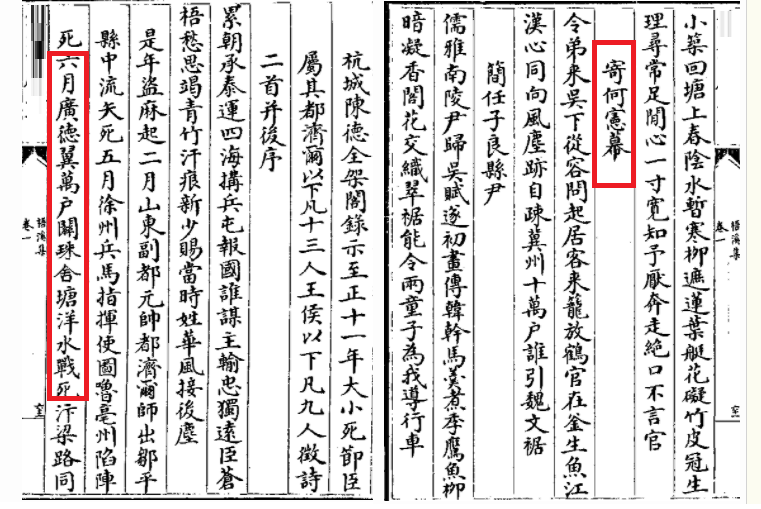 梧溪集
卷一
小築回塘上春陰水暫寒柳遮蓮葉艇花礙竹皮冠生
理尋常足閒心一寸寬知予厭奔走絶口不言官
寄何憲幕
令弟来吳下從容問起居客来籠放鶴官在釜生魚江
漢心同向風塵跡自疎冀州十萬户誰引魏文裾
簡任子良縣尹
儒雅南陵尹歸吳賦遂初畫傳韓幹馬羮煮季鷹魚柳
暗凝香閣花交織翠裾能令兩童子為我導行車
杭城陳德全架閣錄示至正十一年大小死節臣
屬其都濟爾以下凡十三人王侯以下凡九人徵詩
二首并後序
累朝承泰運四海搆兵屯報國誰謀王輸忠獨遠臣蒼
梧愁思竭青竹汗痕新少賜當時姓華風接後塵
是年盗麻起二月山東副都元帥都濟爾師出鄒平
縣中流矢死五月徐州兵馬指揮使圖嚕亳州陷陣
死六月廣德翼萬户關珠舍塘洋水戰死汴梁路同
梧溪集
卷一